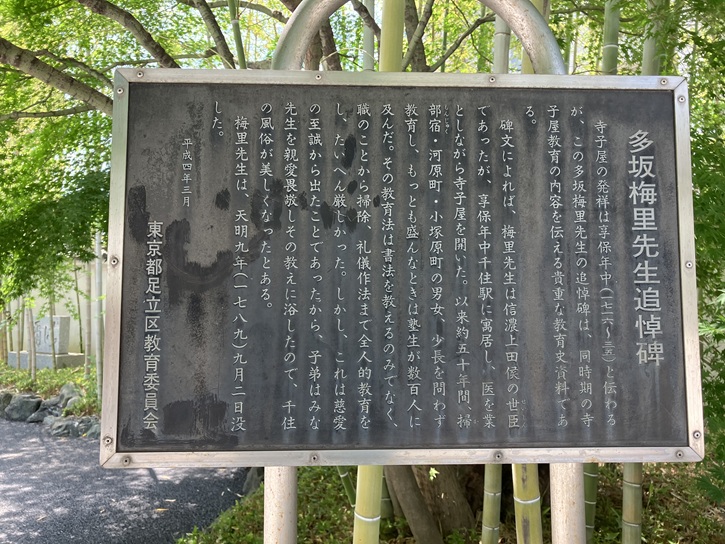 多坂梅里先生追悼碑
寺子屋の発祥は享保年中(一七一六〜三五)と伝わる
が、この多坂梅里先生の追悼碑は、同時期の寺
子屋教育の内容を伝える貴重な教育史資料であ
る。
碑文によれば、梅里先生は信濃上田侯の世臣
であったが、享保年中千住駅に寓居し、医を業
としながら寺子屋を開いた。以来約五十年間、掃
部宿・河原町・小塚原町の男女、少長を問わず
教育し、もっとも盛んなときは塾生が数百人に
及んだ。その教育法は書法を教えるのみでなく、
職のことから掃除、礼儀作法まで全人的教育を
し、たいへん厳しかった。しかし、これは慈愛
の至誠から出たことであったから、子弟はみな
先生を親愛畏敬しその教えに浴したので、千住
の風俗が美しくなったとある。
梅里先生は、天明九年(一七八九)九月二日没
した。
平成四年三月
東京都足立区教育委員会